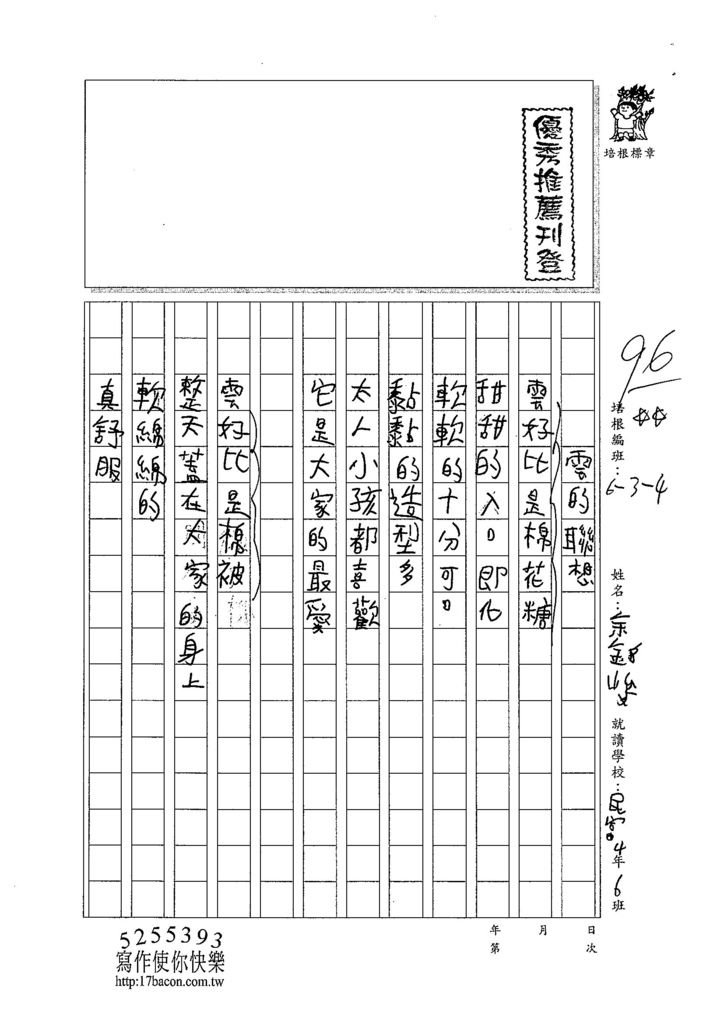 優秀推薦刊登
培根標章
96
培根編班：6-3-4
姓名：余
就讀學校：民富4年6班
雲的聯想
雲好比是棉花糖
甜甜的入口即化
軟軟的十分可口
黏黏的造型多
大人小孩都喜歡
它是大家的最愛
雲好比是棉被
整天蓋在大家的身上
軟綿綿的
真舒服
年 月 日
第 次
5255393
寫作使你快樂
http:17bacon.com.tw